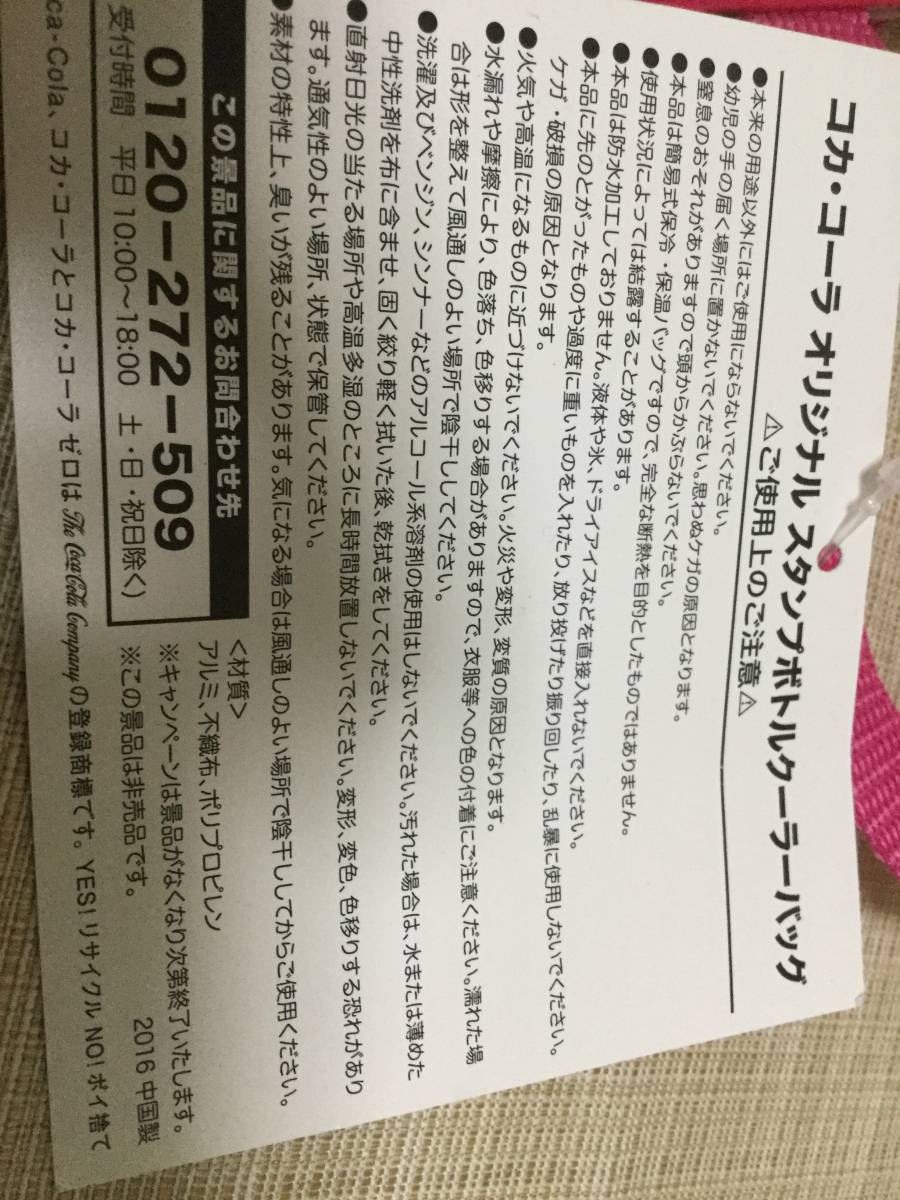 コカ・コーラ オリジナル スタンプボトルクーラーバッグ
⚠ご使用上のご注意⚠
●本来の用途以外にはご使用にならないでください。
●幼児の手の届く場所に置かないでください。思わぬケガの原因となります。
●窒息のおそれがありますので頭からかぶらないでください。
●本品は簡易式保冷・保温バッグですので、完全な断熱を目的としたものではありません。
●使用状況によっては結露することがあります。
●本品は防水加工しておりません。液体や氷、ドライアイスなどを直接入れないでください。
●本品に先のとがったものや過度に重いものを入れたり、放り投げたり振り回したり、乱暴に使用しないでください。
ケガ・破損の原因となります。
●火気や高温になるものに近づけないでください。火災や変形、変質の原因となります。
●水漏れや摩擦により、色落ち、色移りする場合がありますので、衣服等への色の付着にご注意ください。濡れた場
合は形を整えて風通しのよい場所で陰干ししてください。
●洗濯及びベンジン、シンナーなどのアルコール系溶剤の使用はしないでください。汚れた場合は、水または薄めた
中性洗剤を布に含ませ、固く絞り軽く拭いた後、乾拭きをしてください。
●直射日光の当たる場所や高温多湿のところに長時間放置しないでください。変形、変色、色移りする恐れがあり
ます。通気性のよい場所、状態で保管してください。
●素材の特性上、臭いが残ることがあります。気になる場合は風通しのよい場所で陰干ししてからご使用ください。
この景品に関するお問合わせ先
0120-272-509
受付時間 平日10:00〜18:00 土・日・祝日除く)
<材質>
アルミ、不織布、ポリプロピレン
※キャンペーンは景品がなくなり次第終了いたします。
※この景品は非売品です。 2016 中国製
ca-Cola、コカ・コーラとコカ・コーラ ゼロは The Coca-Cola Companyの登録商標です。 YES!リサイクル NO!ポイ捨て